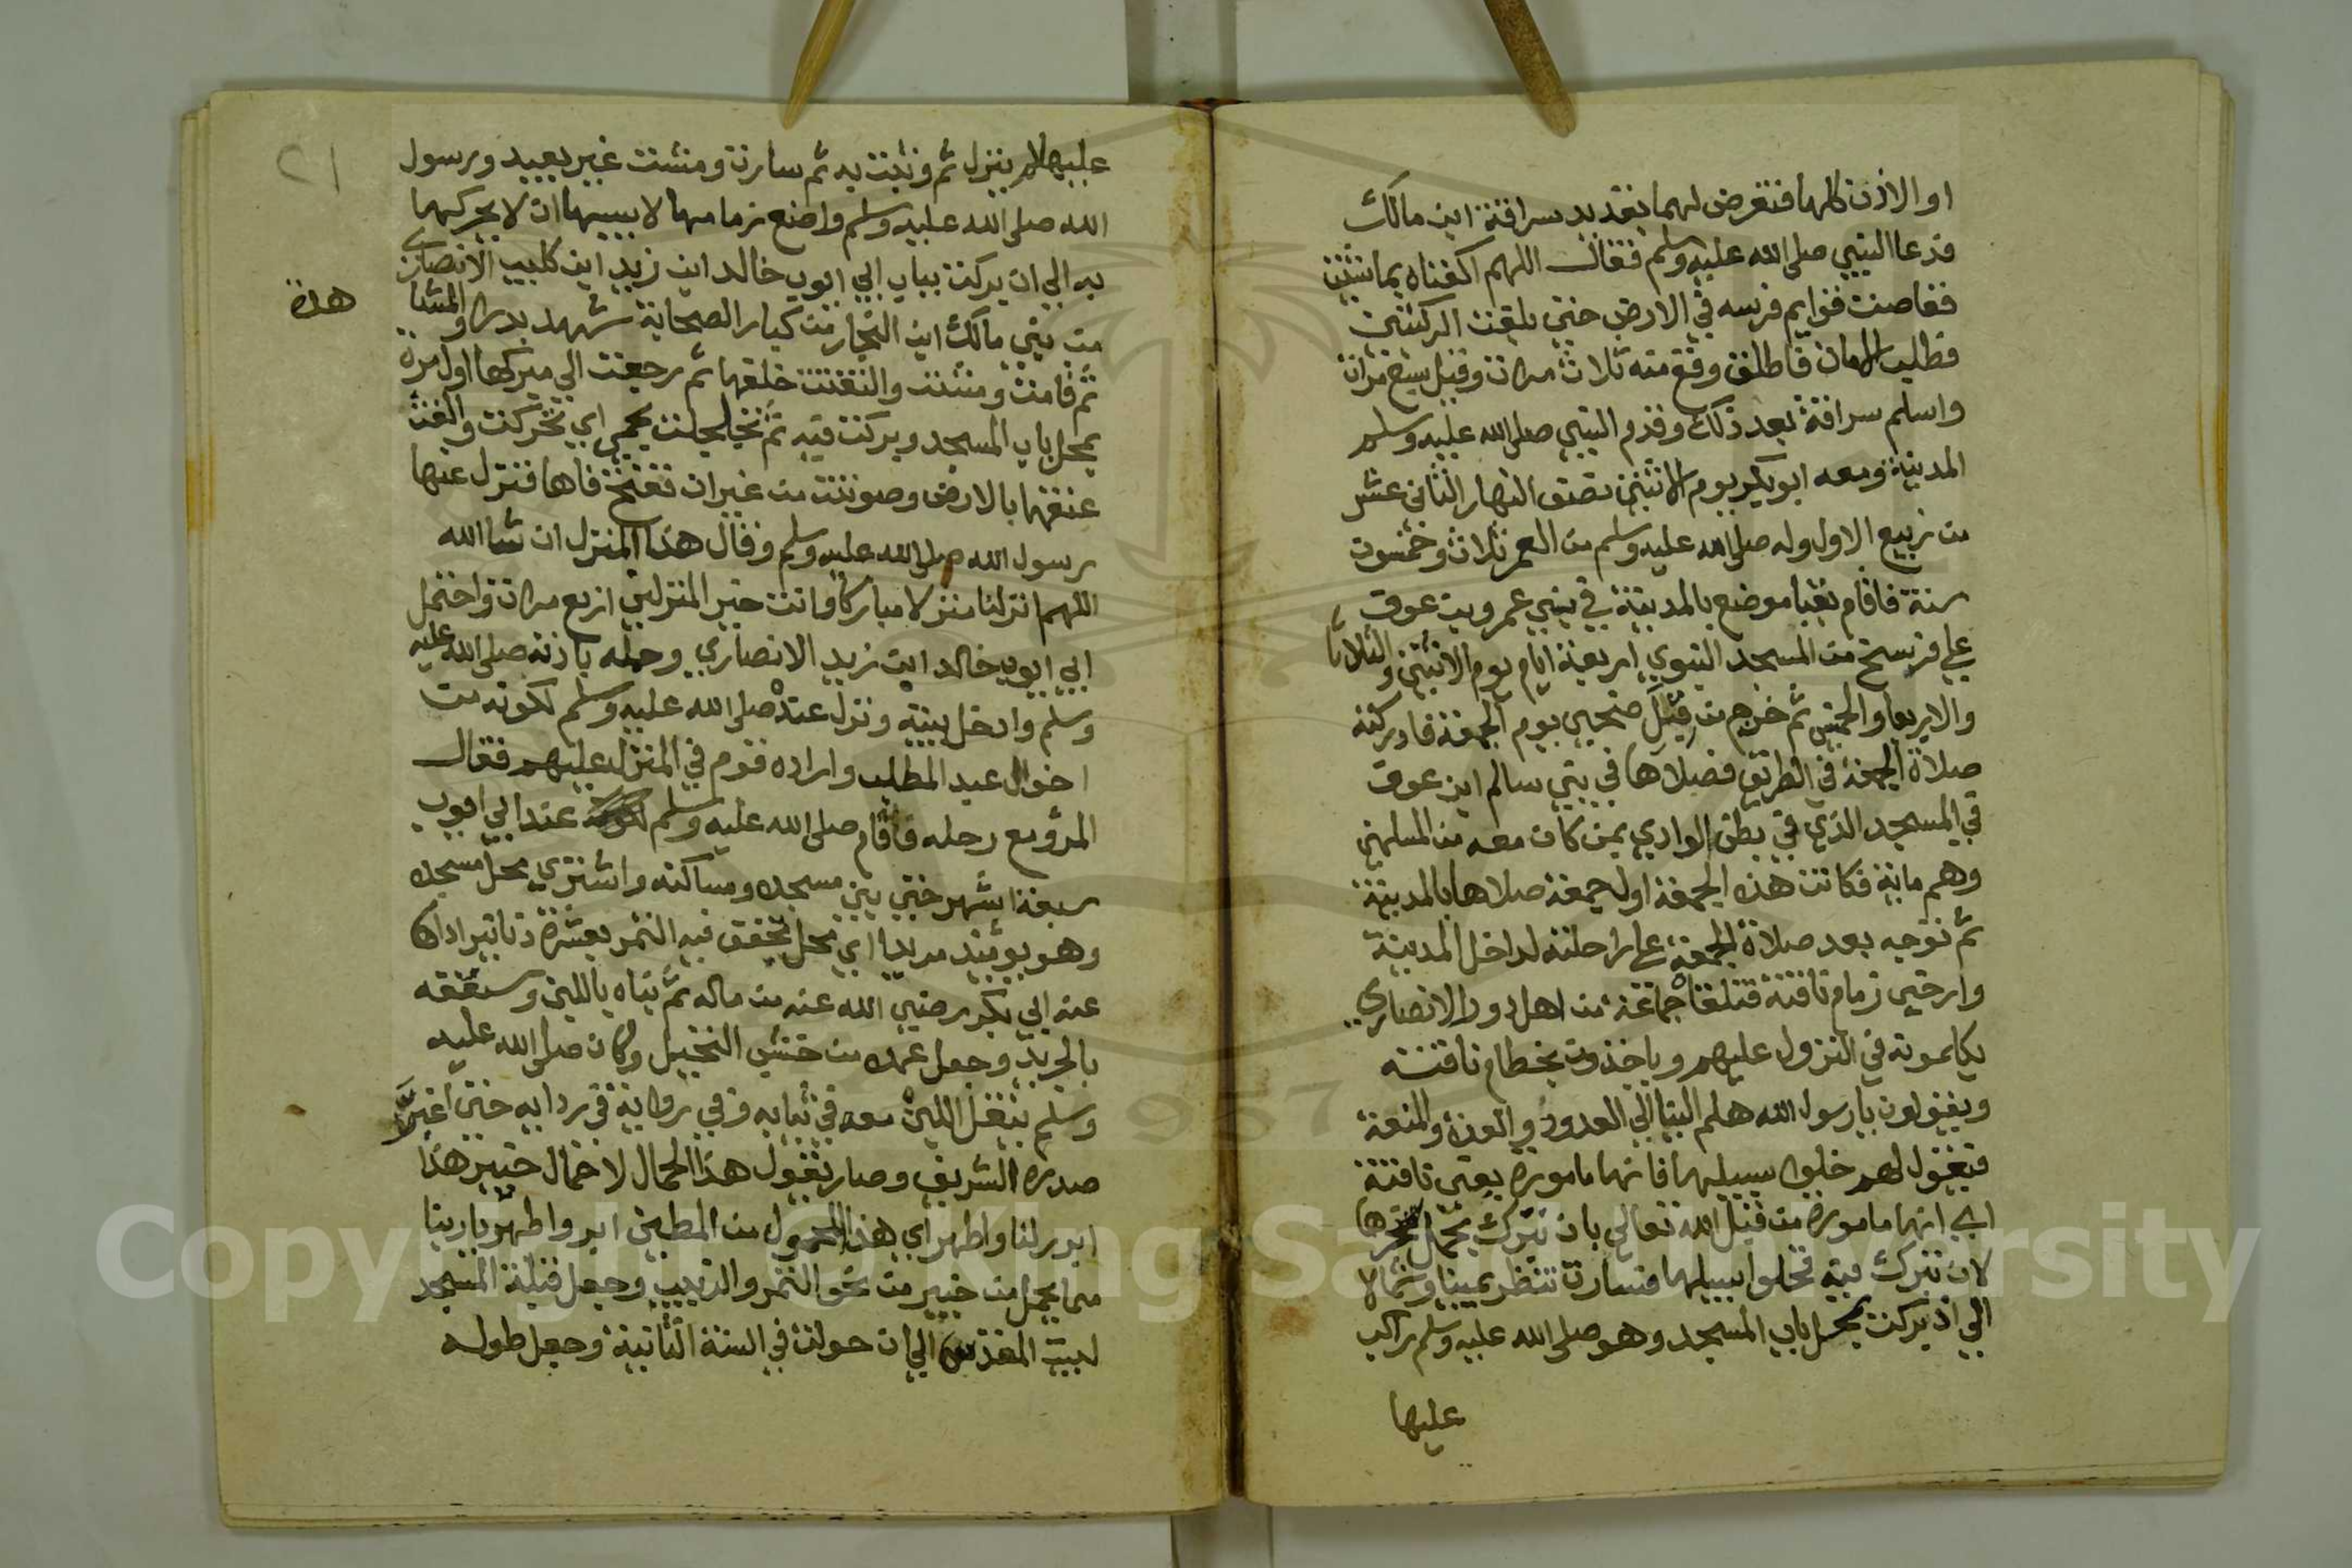 او الاذن كلها فتعرض لهما بقديد سراقة ابن مالك
فدعا النبي صلى الله عليه وسلم فقال اللهم اكفناه بما شئت
فغاصت قوايم فرسه في الارض حتى بلغت الركبتين
فطلب الامان فاطلق وقع منه ثلاث مرات وقيل سبع مرات
واسلم سراقة بعد ذلك وقدم النبي صلى الله عليه وسلم
المدينة ومعه ابو بكر يوم الاثنين نصف النهار الثاني عشر
من ربيع الاول وله صلى الله عليه وسلم من العمر ثلاث وخمسون
سنة فاقام بقبا موضع بالمدينة في بني عمرو بن عوف
على فرسخ من المسجد النبوي اربعة ايام يوم الاثنين والثلاثا
والاربعا والخميس ثم خرج من قبل ضحى يوم الجمعة فادركته
صلاة الجمعة في الطريق فصلاها في بني سالم ابن عوف
في المسجد الذي في بطن الوادي بمن كان معه من المسلمين
وهم ماية فكانت هذه الجمعة اول جمعة صلاها بالمدينة
ثم توجه بعد صلاة الجمعة على راحلته لداخل المدينة
وارخي زمام ناقته فتلقاه جماعة من اهل دور الانصاري
يكلمونه في النزول عليهم وياخذون بخطام ناقته
ويقولون يا رسول الله هلم الينا الي العدد والعدة والمنعة
فيقول لهم خلوا سبيلها فانها مامورة يعني ناقته
اي انها مامورة من قبل الله تعالي بان تترك بمحل
لان تبرك فيه فخلوا سبيلها فسارت تنظر يمينا وشمالا
الي اذ بركت بمحل باب المسجد وهو صلى الله عليه وسلم راكب
عليها
٢١
عليها لم ينزل ثم وثبت به ثم سارت ومشت غير بعيد ورسول
الله صلى الله عليه وسلم واضع زمامها لا يحركها
به الي ان بركت بباب ابي ايوب خالد ابن زيد ابن كليب الانصاري
من بني مالك ابن النجار من كبار الصحابة شهد بدرا والمشا
هدة
ثم قامت ومشت والتفتت خلفها ثم رجعت الي مبركها اول مرة
بمحل باب المسجد وبركت فيه ثم تجلجلت بجيم اي تحركت والقت
عنقها بالارض وصوتت من غير ان تفتح فاها فنزل عنها
رسول الله صلى الله عليه وسلم وقال هذا المنزل ان شا الله
اللهم انزلنا منزلا مباركا وانت خير المنزلين اربع مرات واحتمل
ابي ايوب خالد ابن زيد الانصاري رحله باذنه صلى الله عليه
وسلم وادخل بيته ونزل عنده صلى الله عليه وسلم لكونه من
اخوال عبد المطلب واراده قوم في المنزل عليهم فقال
المرؤ مع رحله فاقام صلى الله عليه وسلم عند ابي ايوب
سبعة اشهر حتى بني مسجده ومساكنه واشتري محل مسجده
وهو يوميذ مربدا اي محل يجفف فيه التمر بعشرة دنانير اداها
عنه ابي بكر رضي الله عنه من ماله ثم بناه باللبن وسقفه
بالجريد وجعل عمده من خشب النخيل وكان صلى الله عليه
وسلم ينقل اللبن معه في ثيابه وفي رواية في ردايه حتى اغبر
صدره الشريف وصار يقول هذا الحمال لا حمال خيبر هذا
ابر ربنا واطهر اي هذا المحمول من الطين ابر واطهر يا ربنا
مما يحمل من خيبر من نحو التمر والزبيب وجعل قبلة المسجد
لبيت المقدس الي ان حولت في السنة الثانية وجعل طوله
Copyright © King Saud University
1957